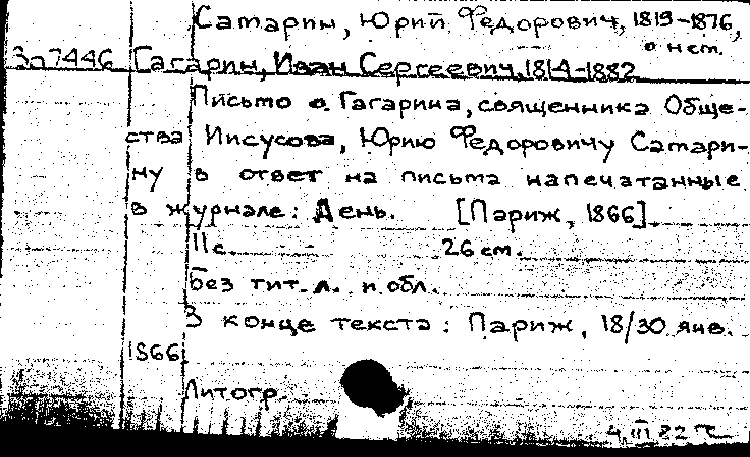 Самарин, Юрий Федорович, 1819-1876,
о нем.
Зп7446 Гагарин, Иван Сергеевич, 1814-1882
Письмо о. Гагарина, священника Обще-
ства Иисусова, Юрию Федоровичу Самари-
ну в ответ на письма напечатанные
в журнале: День. [Париж, 1866].
11 с. 26 см.
Без тит. л. и обл.
В конце текста: Париж, 18/30 янв.
1866
Литогр.
4.III 82